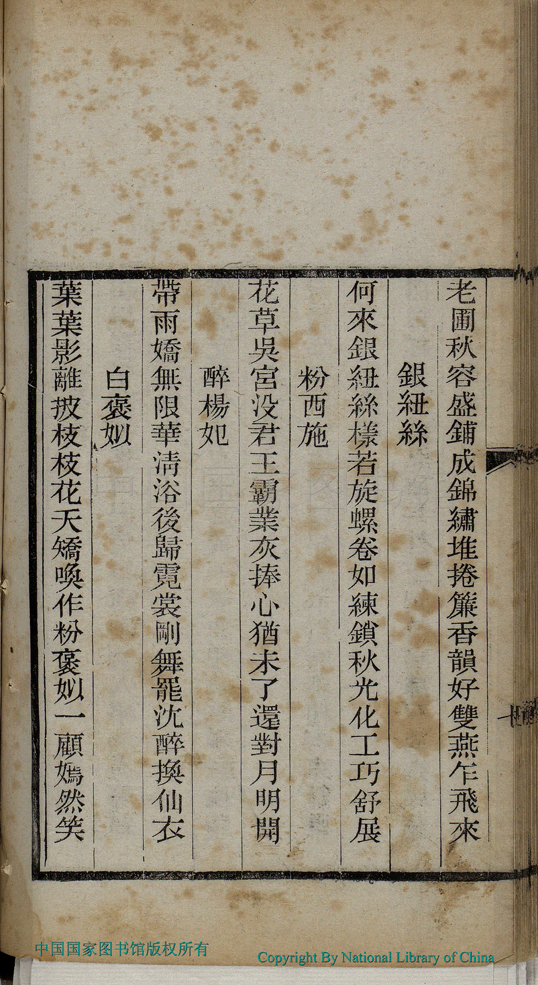 老圃秋容盛鋪成錦繡堆捲簾香韻好雙燕乍飛來
銀紐絲
何來銀紐絲樣若旋螺卷如練鎖秋光化工巧舒展
粉西施
花草吳宮没君王霸業灰捧心猶未了還對月明開
醉楊妃
帶雨嬌無限華清浴後歸霓裳剛舞罷沈醉換仙衣
白褒姒
葉葉影離披枝枝花夭矯喚作粉褒姒一顧嫣然笑
中国国家图书馆版权所有
Copyright By National Library of China